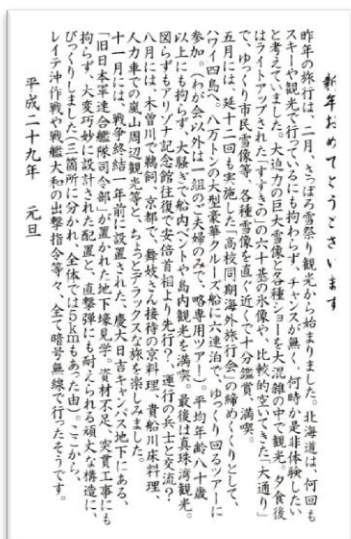 新年おめでとうございます
昨年の旅行は、二月、さっぽろ雪祭り観光から始まりました。北海道は、何回も
スキーや観光で行っているにも拘わらず、チャンスが無く、何時か是非体験したい
と考えていました。大迫力の巨大雪像と各種ショーを大混雑の中で観光。夕食後
はライトアップされた「すすきの」の六十基の氷像や、比較的空いてきた「大通り」
で、ゆっくり市民雪像等、各種雪像を直ぐ近くで十分鑑賞、満喫。
五月には、延十二回も実施した「高校同期海外旅行会」の締めくくりとして、
ハワイ四島へ。八万トンの大型豪華クルーズ船に六連泊で、ゆっくり回るツアーに
参加。（わが会以外は一組のご夫婦のみで、略専用ツアー）。平均年齢八十歳
以上にも拘らず、大騒ぎで船内ベントや島内観光を満喫。最後は真珠湾観光。
図らずもアリゾナ記念館往復で安倍首相より先行？、運行の兵士と交流？
八月には、木曽川で鵜飼、京都で、舞妓さん接待の京料理、貴船川床料理、
人力車での嵐山周辺観光等と、ちょっとデラックスな旅を楽しみました。
十一月には、戦争終結一年前に設置された、慶大日吉キャンパス地下にある、
「旧日本軍連合艦隊司令部」が置かれた地下壕見学。資材不足、突貫工事にも
拘らず、大変巧妙に設計された配置と、直撃弾にも耐えられる頑丈な構造に、
びっくりしました（三箇所に分かれ、全体では５ｋｍもあった由）。ここから、
レイテ沖作戦や戦艦大和の出撃指令等々、全て暗号無線で行ったそうです。
平成二十九年　元旦